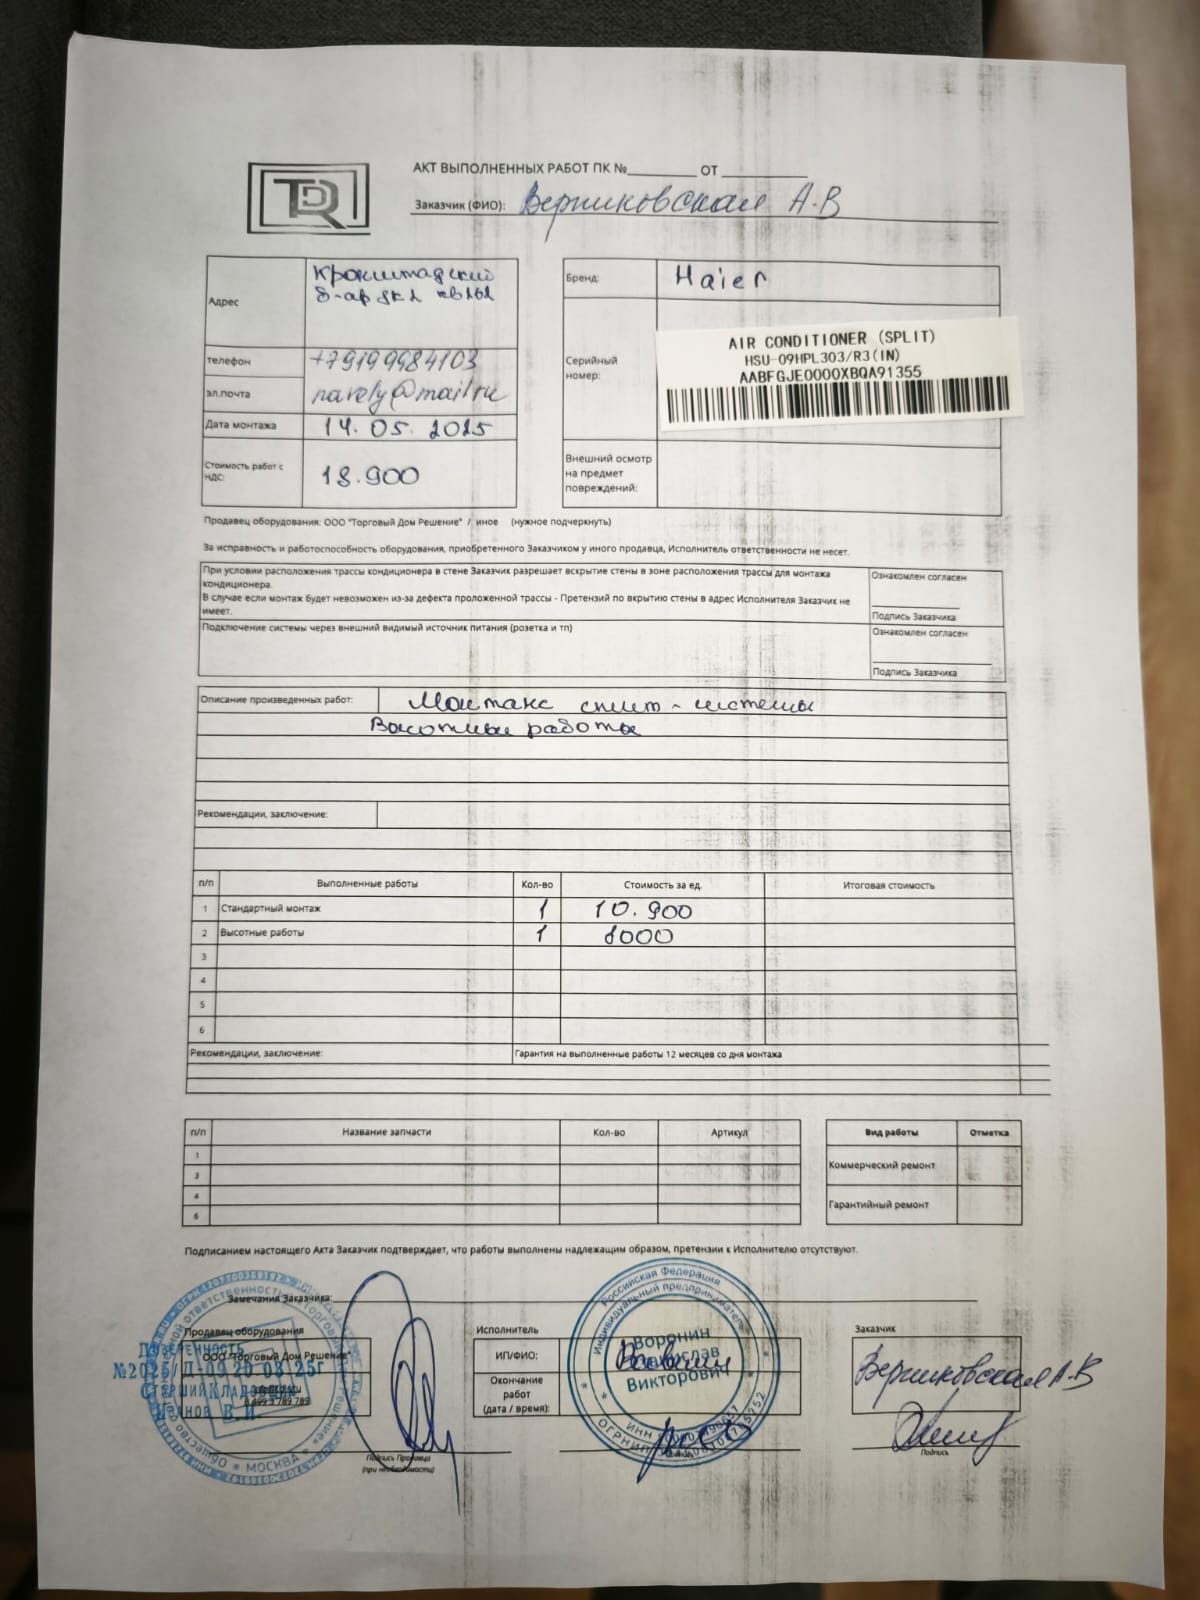 TDR
АКТ ВЫПОЛНЕННЫХ РАБОТ ПК №________ ОТ ________
Заказчик (ФИО): Вериковская А.В
Адрес
Кронштадский
б-ар д к2 кв262
телефон
+79199984103
эл.почта
navely@mail.ru
Дата монтажа
14.05.2025
Стоимость работ с
НДС:
18.900
Бренд:
Haier
Серийный
номер:
AIR CONDITIONER (SPLIT)
HSU-09HPL303/R3(IN)
AABFGJE0000XBQA91355
Внешний осмотр
на предмет
повреждений:
Продавец оборудования: ООО "Торговый Дом Решение" / иное (нужное подчеркнуть)
За исправность и работоспособность оборудования, приобретенного Заказчиком у иного продавца, Исполнитель ответственности не несет.
При условии расположения трассы кондиционера в стене Заказчик разрешает вскрытие стены в зоне расположения трассы для монтажа
кондиционера.
В случае если монтаж будет невозможен из-за дефекта проложенной трассы - Претензий по вкрытию стены в адрес Исполнителя Заказчик не
имеет.
Ознакомлен согласен
Подпись Заказчика
Подключение системы через внешний видимый источник питания (розетка и тп)
Ознакомлен согласен
Подпись Заказчика
Описание произведенных работ: Монтаж сплит-системы
Высотные работы
Рекомендации, заключение:
п/п Выполненные работы Кол-во Стоимость за ед. Итоговая стоимость
1 Стандартный монтаж 1 10.900
2 Высотные работы 1 8000
3
4
5
6
Рекомендации, заключение: Гарантия на выполненные работы 12 месяцев со дня монтажа
п/п Название запчасти Кол-во Артикул
1
3
4
6
Вид работы Отметка
Коммерческий ремонт
Гарантийный ремонт
Подписанием настоящего Акта Заказчик подтверждает, что работы выполнены надлежащим образом, претензии к Исполнителю отсутствуют.
Замечания Заказчика:
Продавец оборудования
ООО "Торговый Дом Решение"
Доверенность
№2025/Д-09 20.03.25г
Старший Кладовщик
Иванов В.И.
МОСКВА
Подпись Продавца
(при необходимости)
Исполнитель
ИП/ФИО:
Окончание
работ
(дата / время):
Российская Федерация
Индивидуальный предприниматель
Воронин
Викторович
ИНН
ОГРНИП
Заказчик
Вериковская А.В
Подпись